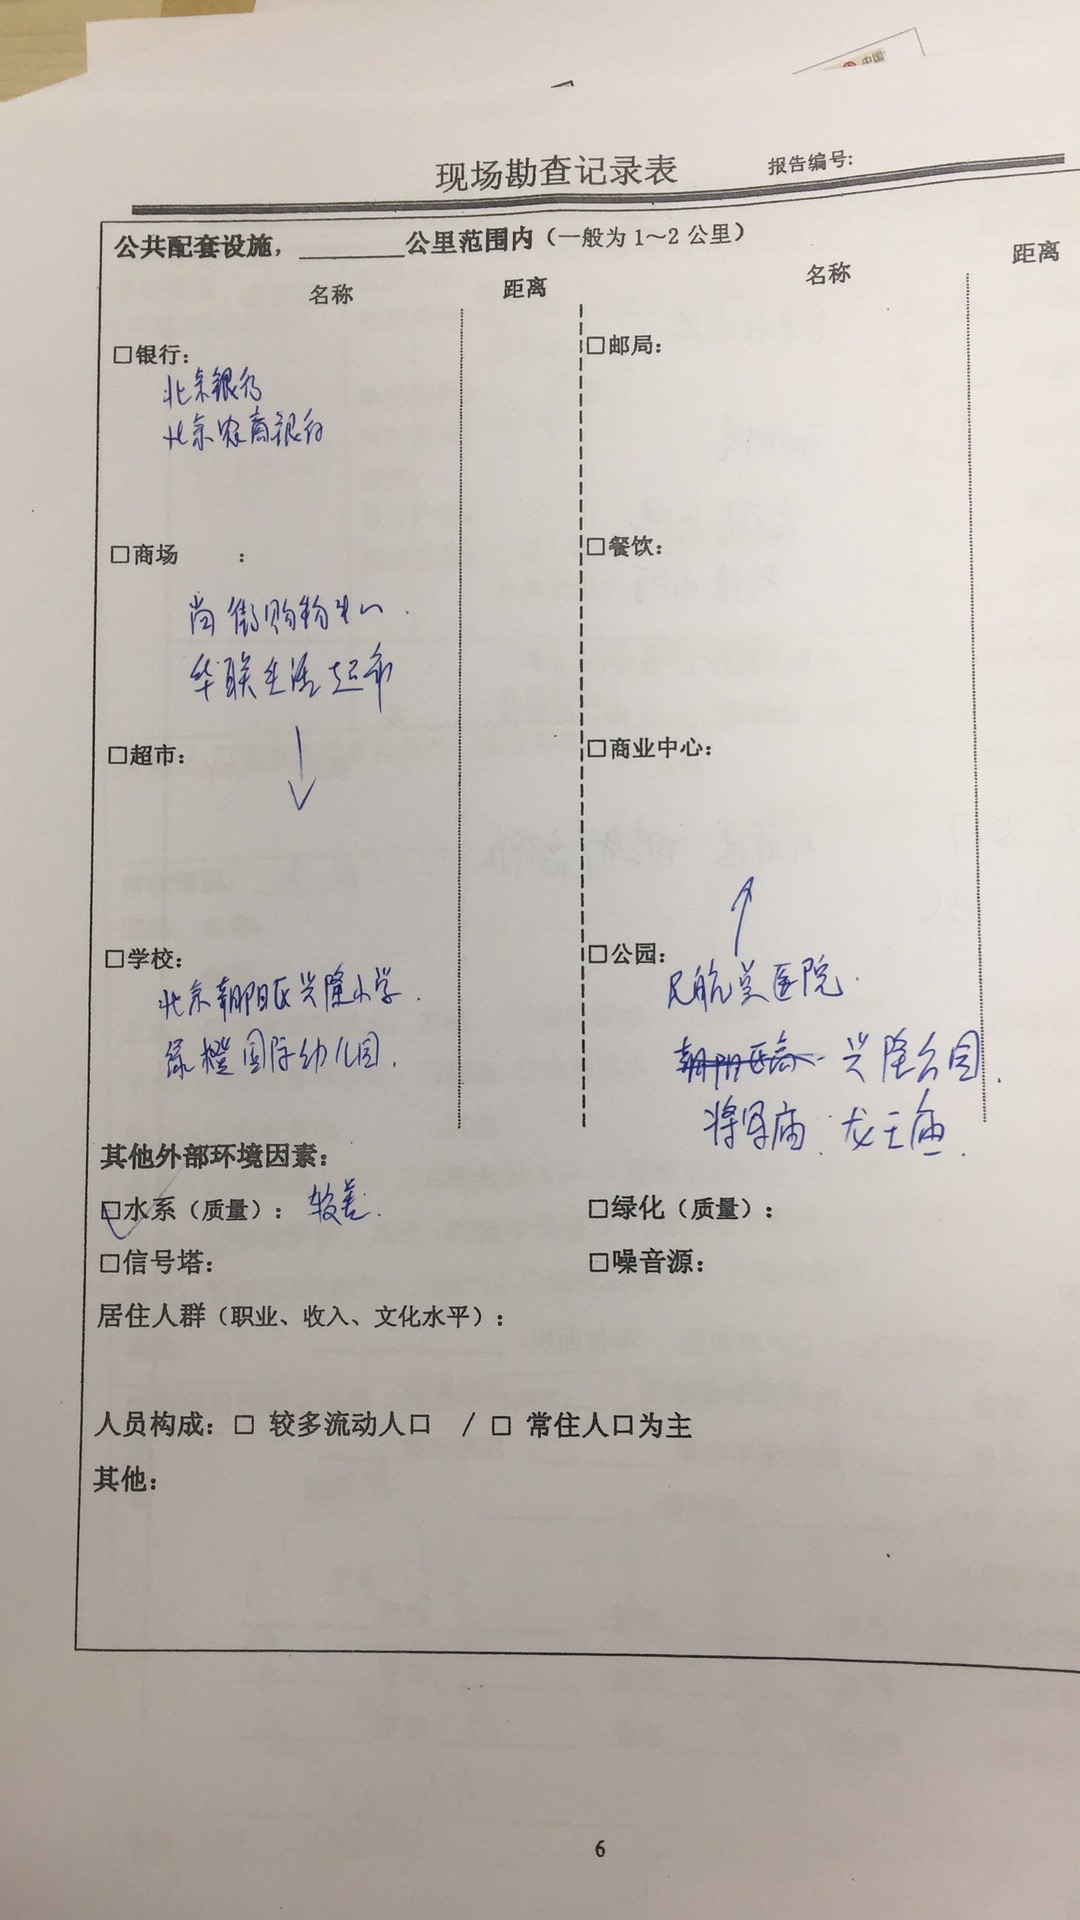 中国
现场勘查记录表 报告编号:
公共配套设施，________公里范围内（一般为1～2公里）
名称 距离 名称 距离
□银行: □邮局:
北京银行
北京农商银行
□商场 : □餐饮:
尚街购物中心.
华联生活超市
□超市: □商业中心:
□学校: □公园:
北京朝阳区兴隆小学. 民航总医院.
绿橙国际幼儿园. 兴隆公园.
将军庙、龙王庙.
其他外部环境因素:
□水系（质量）: 较差. □绿化（质量）:
□信号塔: □噪音源:
居住人群（职业、收入、文化水平）:
人员构成: □ 较多流动人口 / □ 常住人口为主
其他:
6